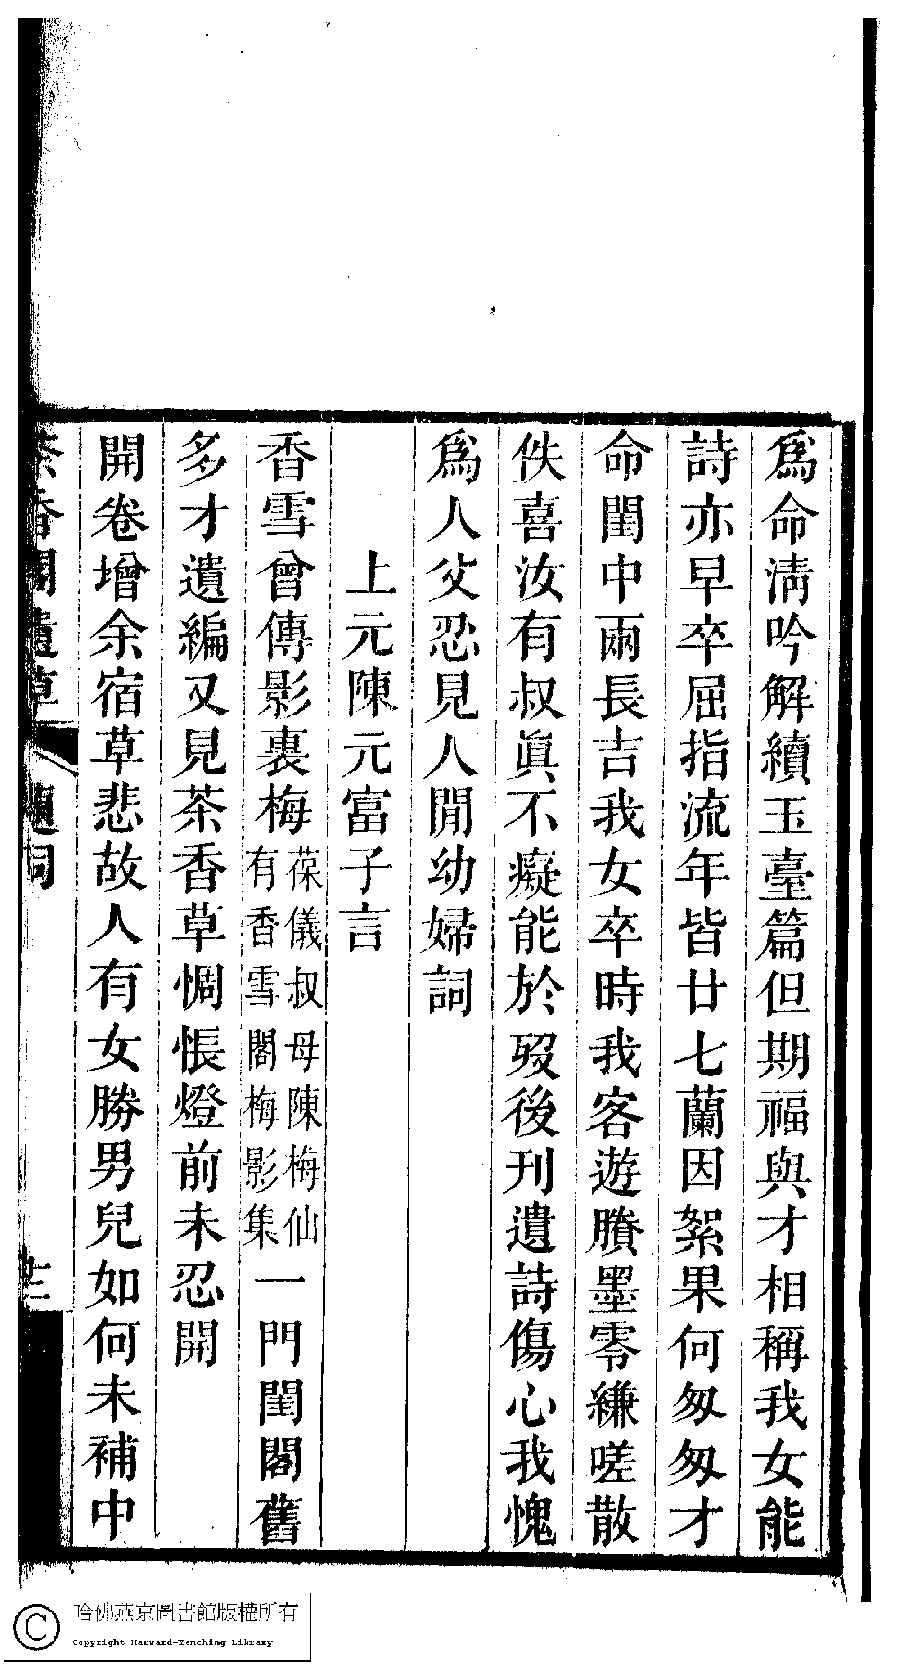 爲命淸吟解續玉臺篇但期福與才相稱我女能
詩亦早卒屈指流年皆廿七蘭因絮果何匆匆才
命閨中兩長吉我女卒時我客遊賸墨零縑嗟散
佚喜汝有叔眞不癡能於歿後刊遺詩傷心我愧
爲人父忍見人閒幼婦詞
上元陳元富子言
香雪曾傳影裏梅
葆儀叔母陳梅仙
有香雪閣梅影集
一門閨閣舊
多才遺編又見茶香草惆悵燈前未忍開
開卷增余宿草悲故人有女勝男兒如何未補中
茶香閣遺草
題詞
哈佛燕京圖書館版權所有
Copyright Harvard-Yenching Library